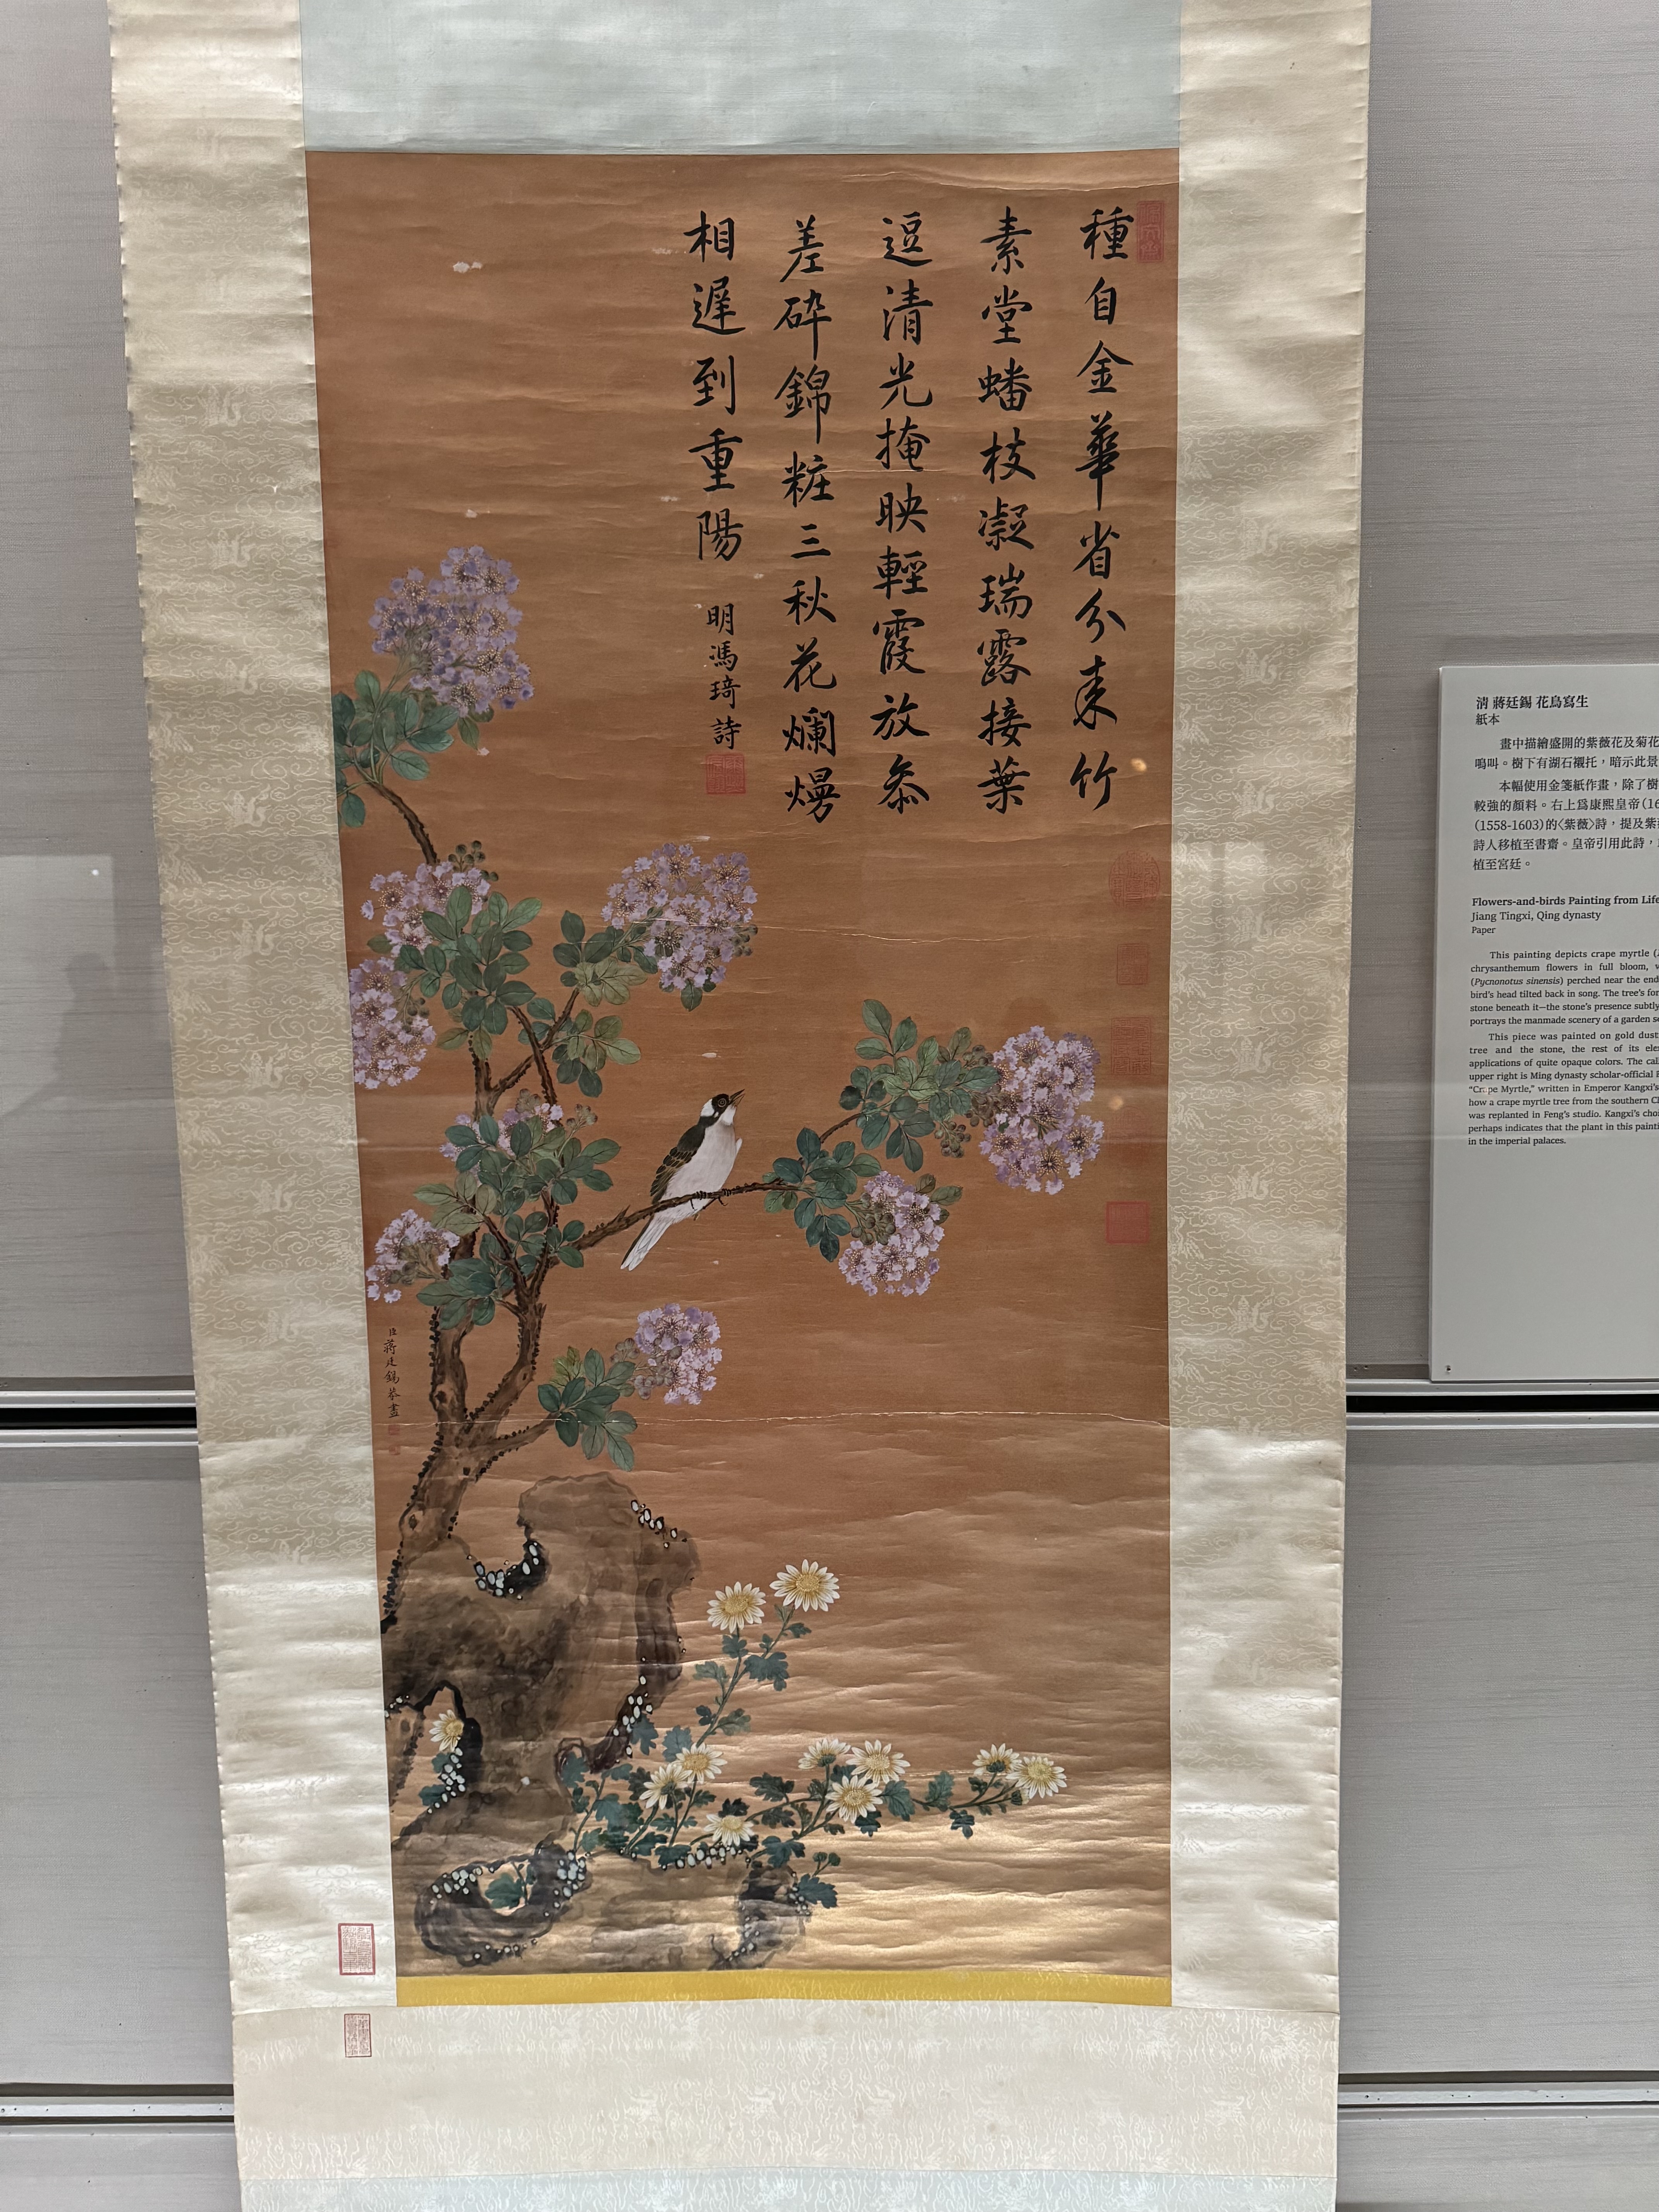 種自金華省分来竹
素堂蟠枝凝瑞露接葉
逗清光掩映輕霞放叅
差碎錦粧三秋花爛熳
相遲到重陽
明馮琦詩
臣蔣廷錫恭畫
清 蔣廷錫 花鳥寫生
紙本
畫中描繪盛開的紫薇花及菊花
鳴叫。樹下有湖石襯托，暗示此景
本幅使用金箋紙作畫，除了樹
較強的顏料。右上爲康熙皇帝(16
(1558-1603)的〈紫薇〉詩，提及紫
詩人移植至書齋。皇帝引用此詩，
植至宮廷。
Flowers-and-birds Painting from Life
Jiang Tingxi, Qing dynasty
Paper
This painting depicts crape myrtle (
chrysanthemum flowers in full bloom,
(Pycnonotus sinensis) perched near the end
bird's head tilted back in song. The tree's for
stone beneath it—the stone's presence subtly
portrays the manmade scenery of a garden
This piece was painted on gold dust
tree and the stone, the rest of its
applications of quite opaque colors. The
upper right is Ming dynasty scholar-official
"Crape Myrtle," written in Emperor Kangxi's
how a crape myrtle tree from the southern
was replanted in Feng's studio. Kangxi's
perhaps indicates that the plant in this
in the imperial palaces.